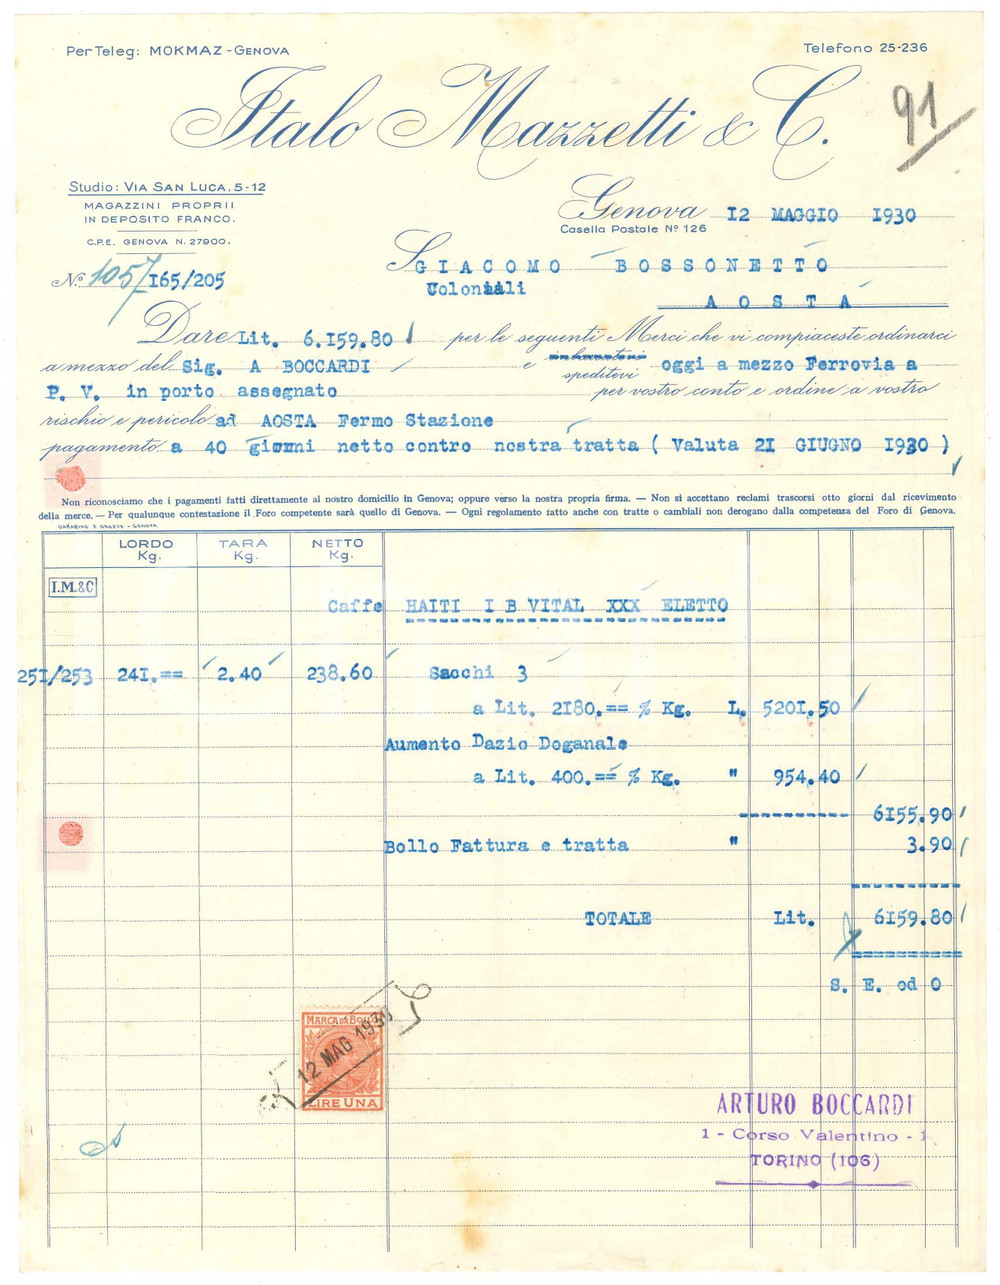 Per Teleg: MOKMAZ - GENOVA
Telefono 25-236
91
Italo Mazzetti & C.
Studio: VIA SAN LUCA, 5-12
MAGAZZINI PROPRII
IN DEPOSITO FRANCO.
C.P.E. GENOVA N. 27900.
Genova 12 MAGGIO 1930
Casella Postale Nº 126
Nº 1057/165/205
S GIACOMO BOSSONETTO
Coloniali
AOSTA
Dare Lit. 6.159.80 per le seguenti Merci che vi compiaceste ordinarci
a mezzo del Sig. A BOCCARDI e speditevi oggi a mezzo Ferrovia a
P. V. in porto assegnato per vostro conto e ordine a vostro
rischio e pericolo ad AOSTA Fermo Stazione
pagamento a 40 giorni netto contro nostra tratta ( Valuta 21 GIUGNO 1930 )
Non riconosciamo che i pagamenti fatti direttamente al nostro domicilio in Genova; oppure verso la nostra propria firma. — Non si accettano reclami trascorsi otto giorni dal ricevimento
della merce. — Per qualunque contestazione il Foro competente sarà quello di Genova. — Ogni regolamento tatto anche con tratte o cambiali non derogano dalla competenza del Foro di Genova.
LORDO Kg. TARA Kg. NETTO Kg.
I.M.&C
Caffe HAITI I B VITAL XXX ELETTO
251/253 241.== 2.40 238.60 Sacchi 3
a Lit. 2180.== % Kg. L. 5201.50
Aumento Dazio Doganale
a Lit. 400.== % Kg. " 954.40
6155.90
Bollo Fattura e tratta " 3.90
TOTALE Lit. 6159.80
S. E. od O
MARCA DA BOLLO
12 MAG 1930
LIRE UNA
ARTURO BOCCARDI
1 - Corso Valentino - 1
TORINO (106)